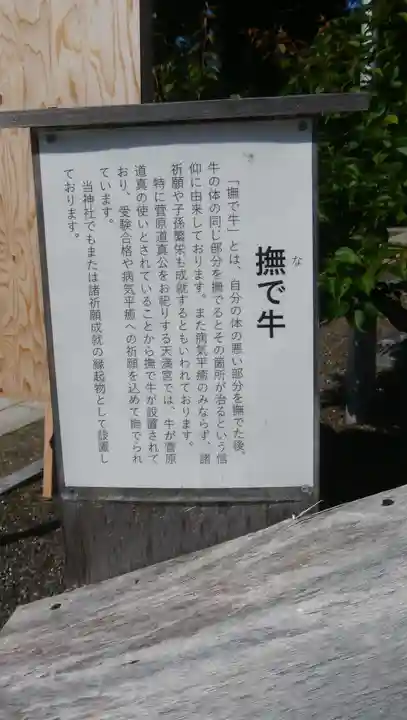 な
撫で牛
「撫で牛」とは、自分の体の悪い部分を撫でた後。
牛の体の同じ部分を撫でるとその箇所が治るという信
仰に由来しております。また病気平癒のみならず、諸
祈願や子孫繁栄も成就するともいわれております。
特に菅原道真公をお祀りする天満宮では、牛が菅原
道真の使いとされていることから撫で牛が設置されて
おり、受験合格や病気平癒への祈願を込めて撫でられ
ています。
当神社でもまたは諸祈願成就の縁起物として設置し
ております。